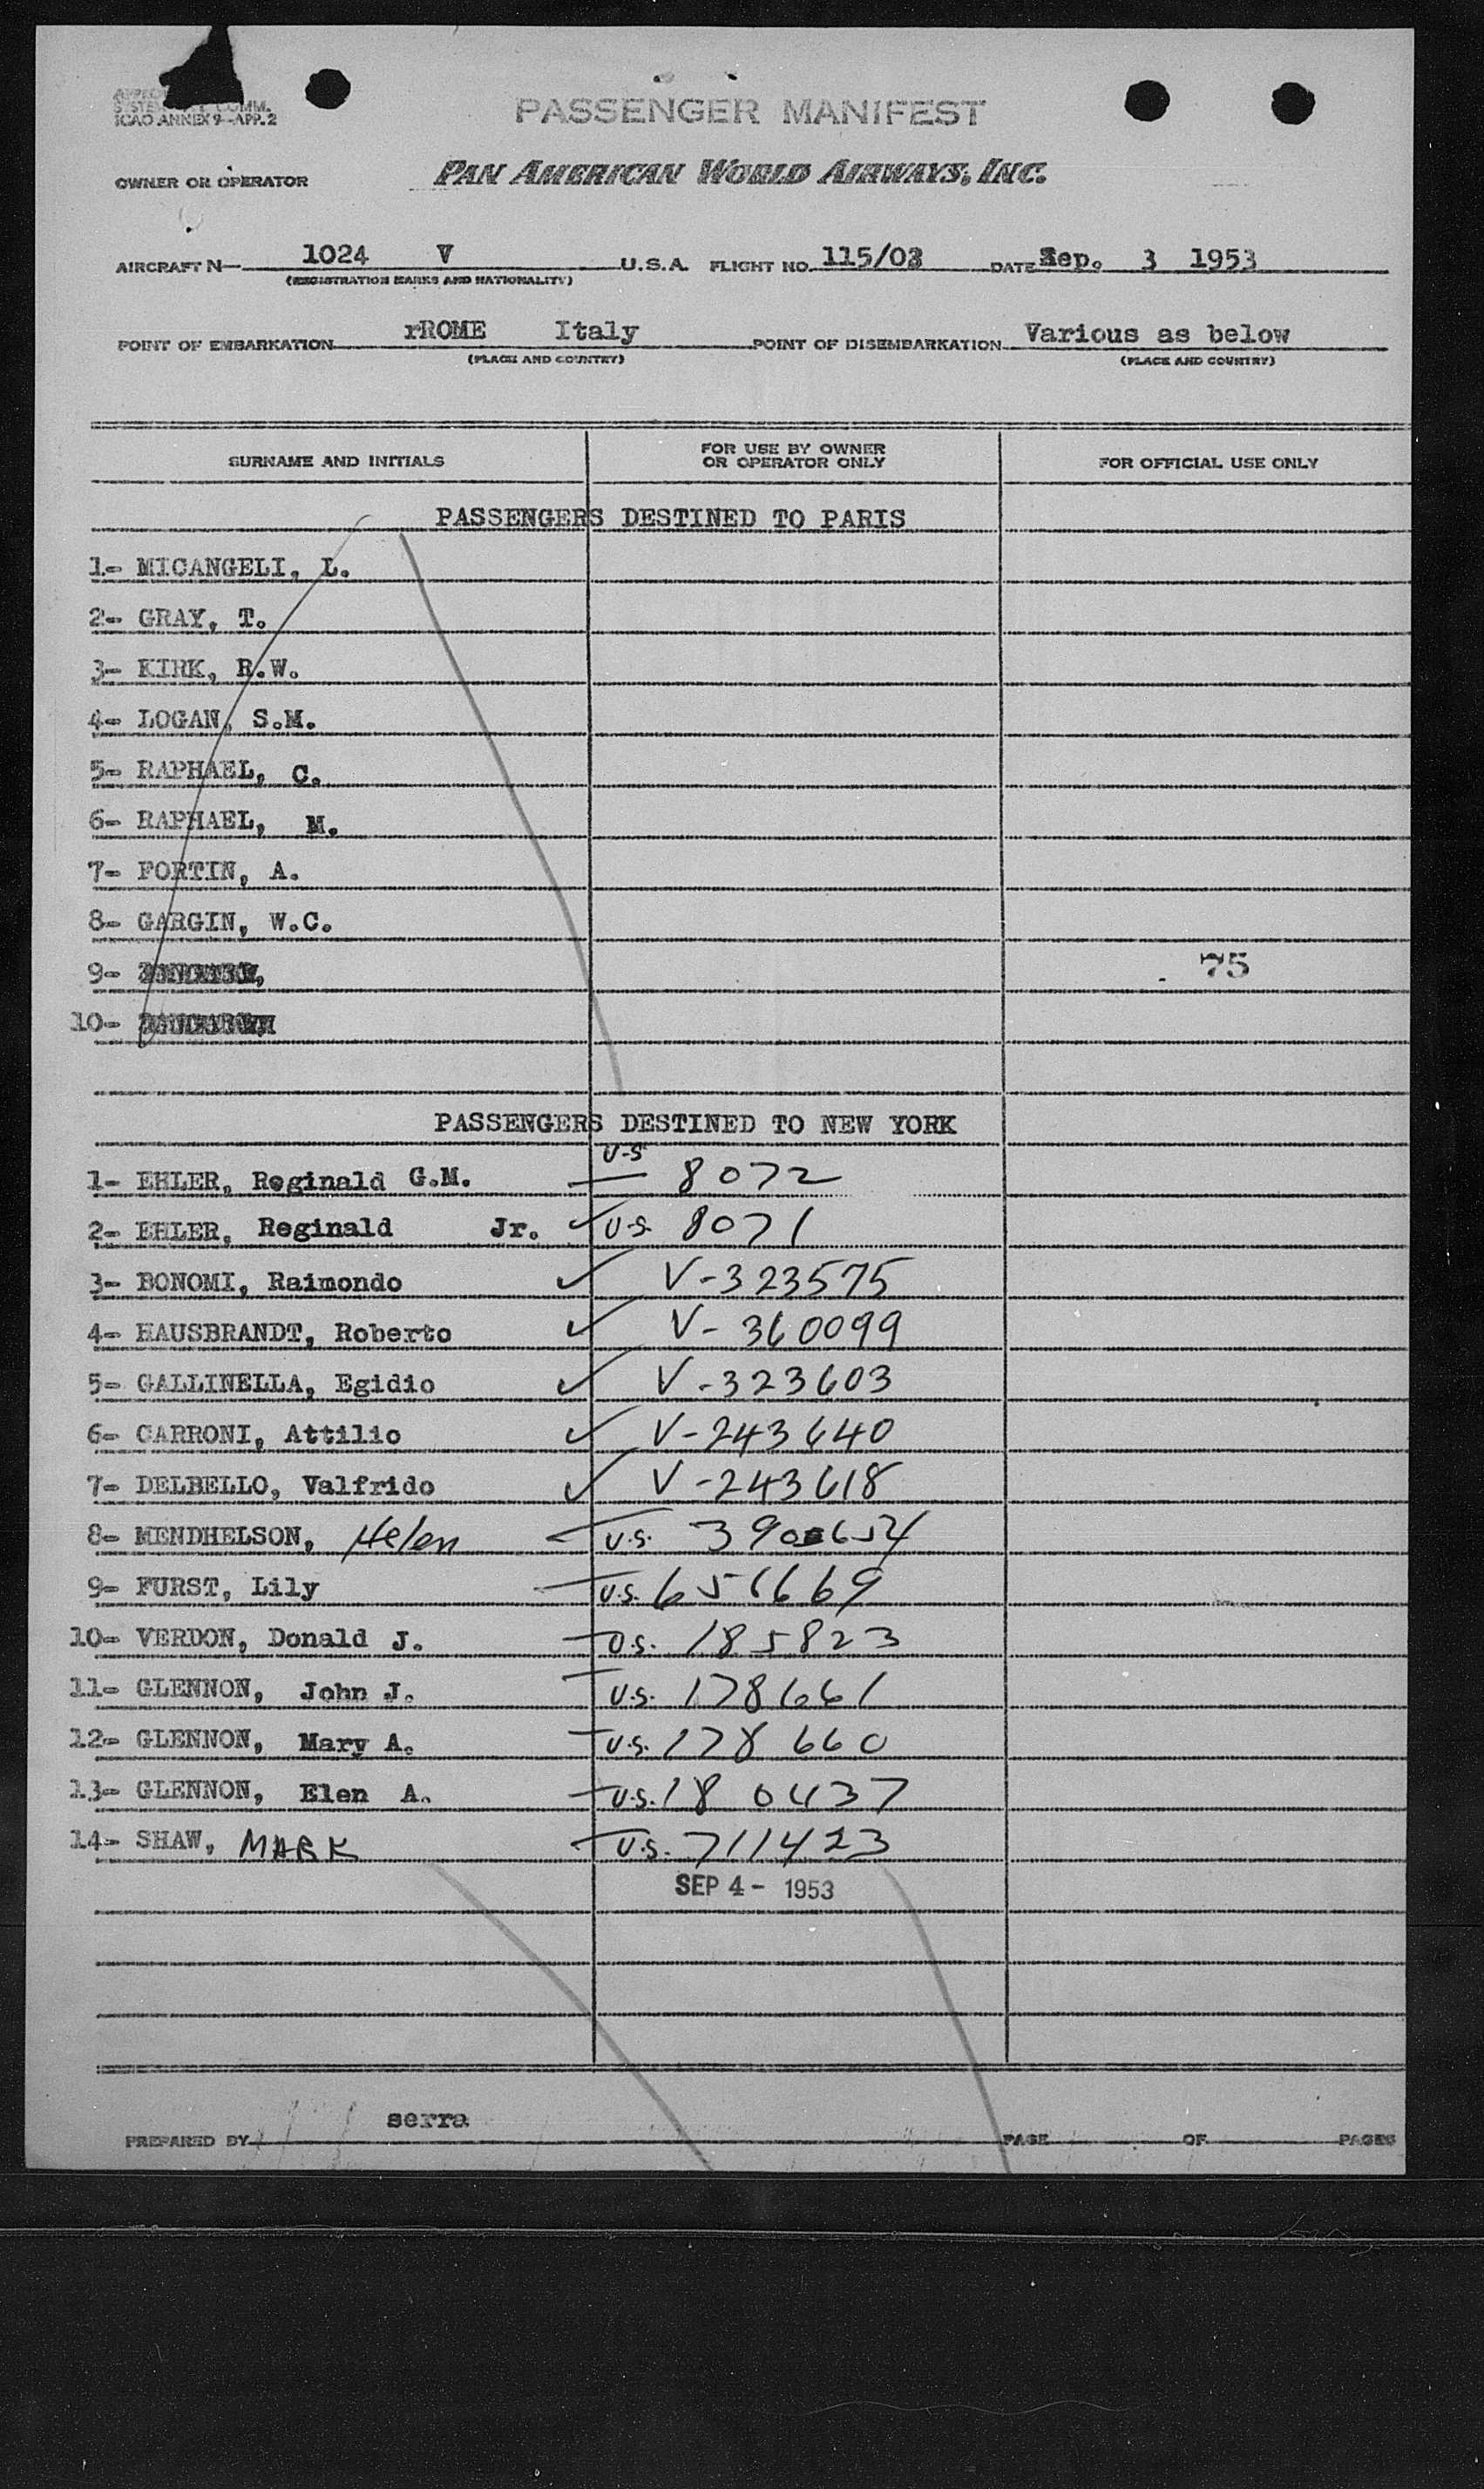 ICAO ANNEX 9-APP. 2
PASSENGER MANIFEST
OWNER OR OPERATOR PAN AMERICAN WORLD AIRWAYS, INC.
AIRCRAFT N- 1024 V U.S.A. FLIGHT NO. 115/03 DATE Sep. 3 1953
(REGISTRATION MARKS AND NATIONALITY)
POINT OF EMBARKATION rROME Italy POINT OF DISEMBARKATION Various as below
(PLACE AND COUNTRY) (PLACE AND COUNTRY)
SURNAME AND INITIALS FOR USE BY OWNER OR OPERATOR ONLY FOR OFFICIAL USE ONLY
PASSENGERS DESTINED TO PARIS
1- MICANGELI, L.
2- GRAY, T.
3- KIRK, R.W.
4- LOGAN, S.M.
5- RAPHAEL, C.
6- RAPHAEL, M.
7- FORTIN, A.
8- GARGIN, W.C.
9- 75
10-
PASSENGERS DESTINED TO NEW YORK
1- EHLER, Reginald G.M. U-S 8072
2- EHLER, Reginald Jr. U.S. 8071
3- BONOMI, Raimondo V-323575
4- HAUSBRANDT, Roberto V-360099
5- GALLINELLA, Egidio V-323603
6- CARRONI, Attilio V-243640
7- DELBELLO, Valfrido V-243618
8- MENDHELSON, Helen U.S.
9- FURST, Lily U.S. 651669
10- VERDON, Donald J. U.S. 185823
11- GLENNON, John J. U.S. 178661
12- GLENNON, Mary A. U.S. 178660
13- GLENNON, Elen A. U.S. 180437
14- SHAW, MARK U.S. 711423
SEP 4- 1953
serra
PREPARED BY PAGE OF PAGES